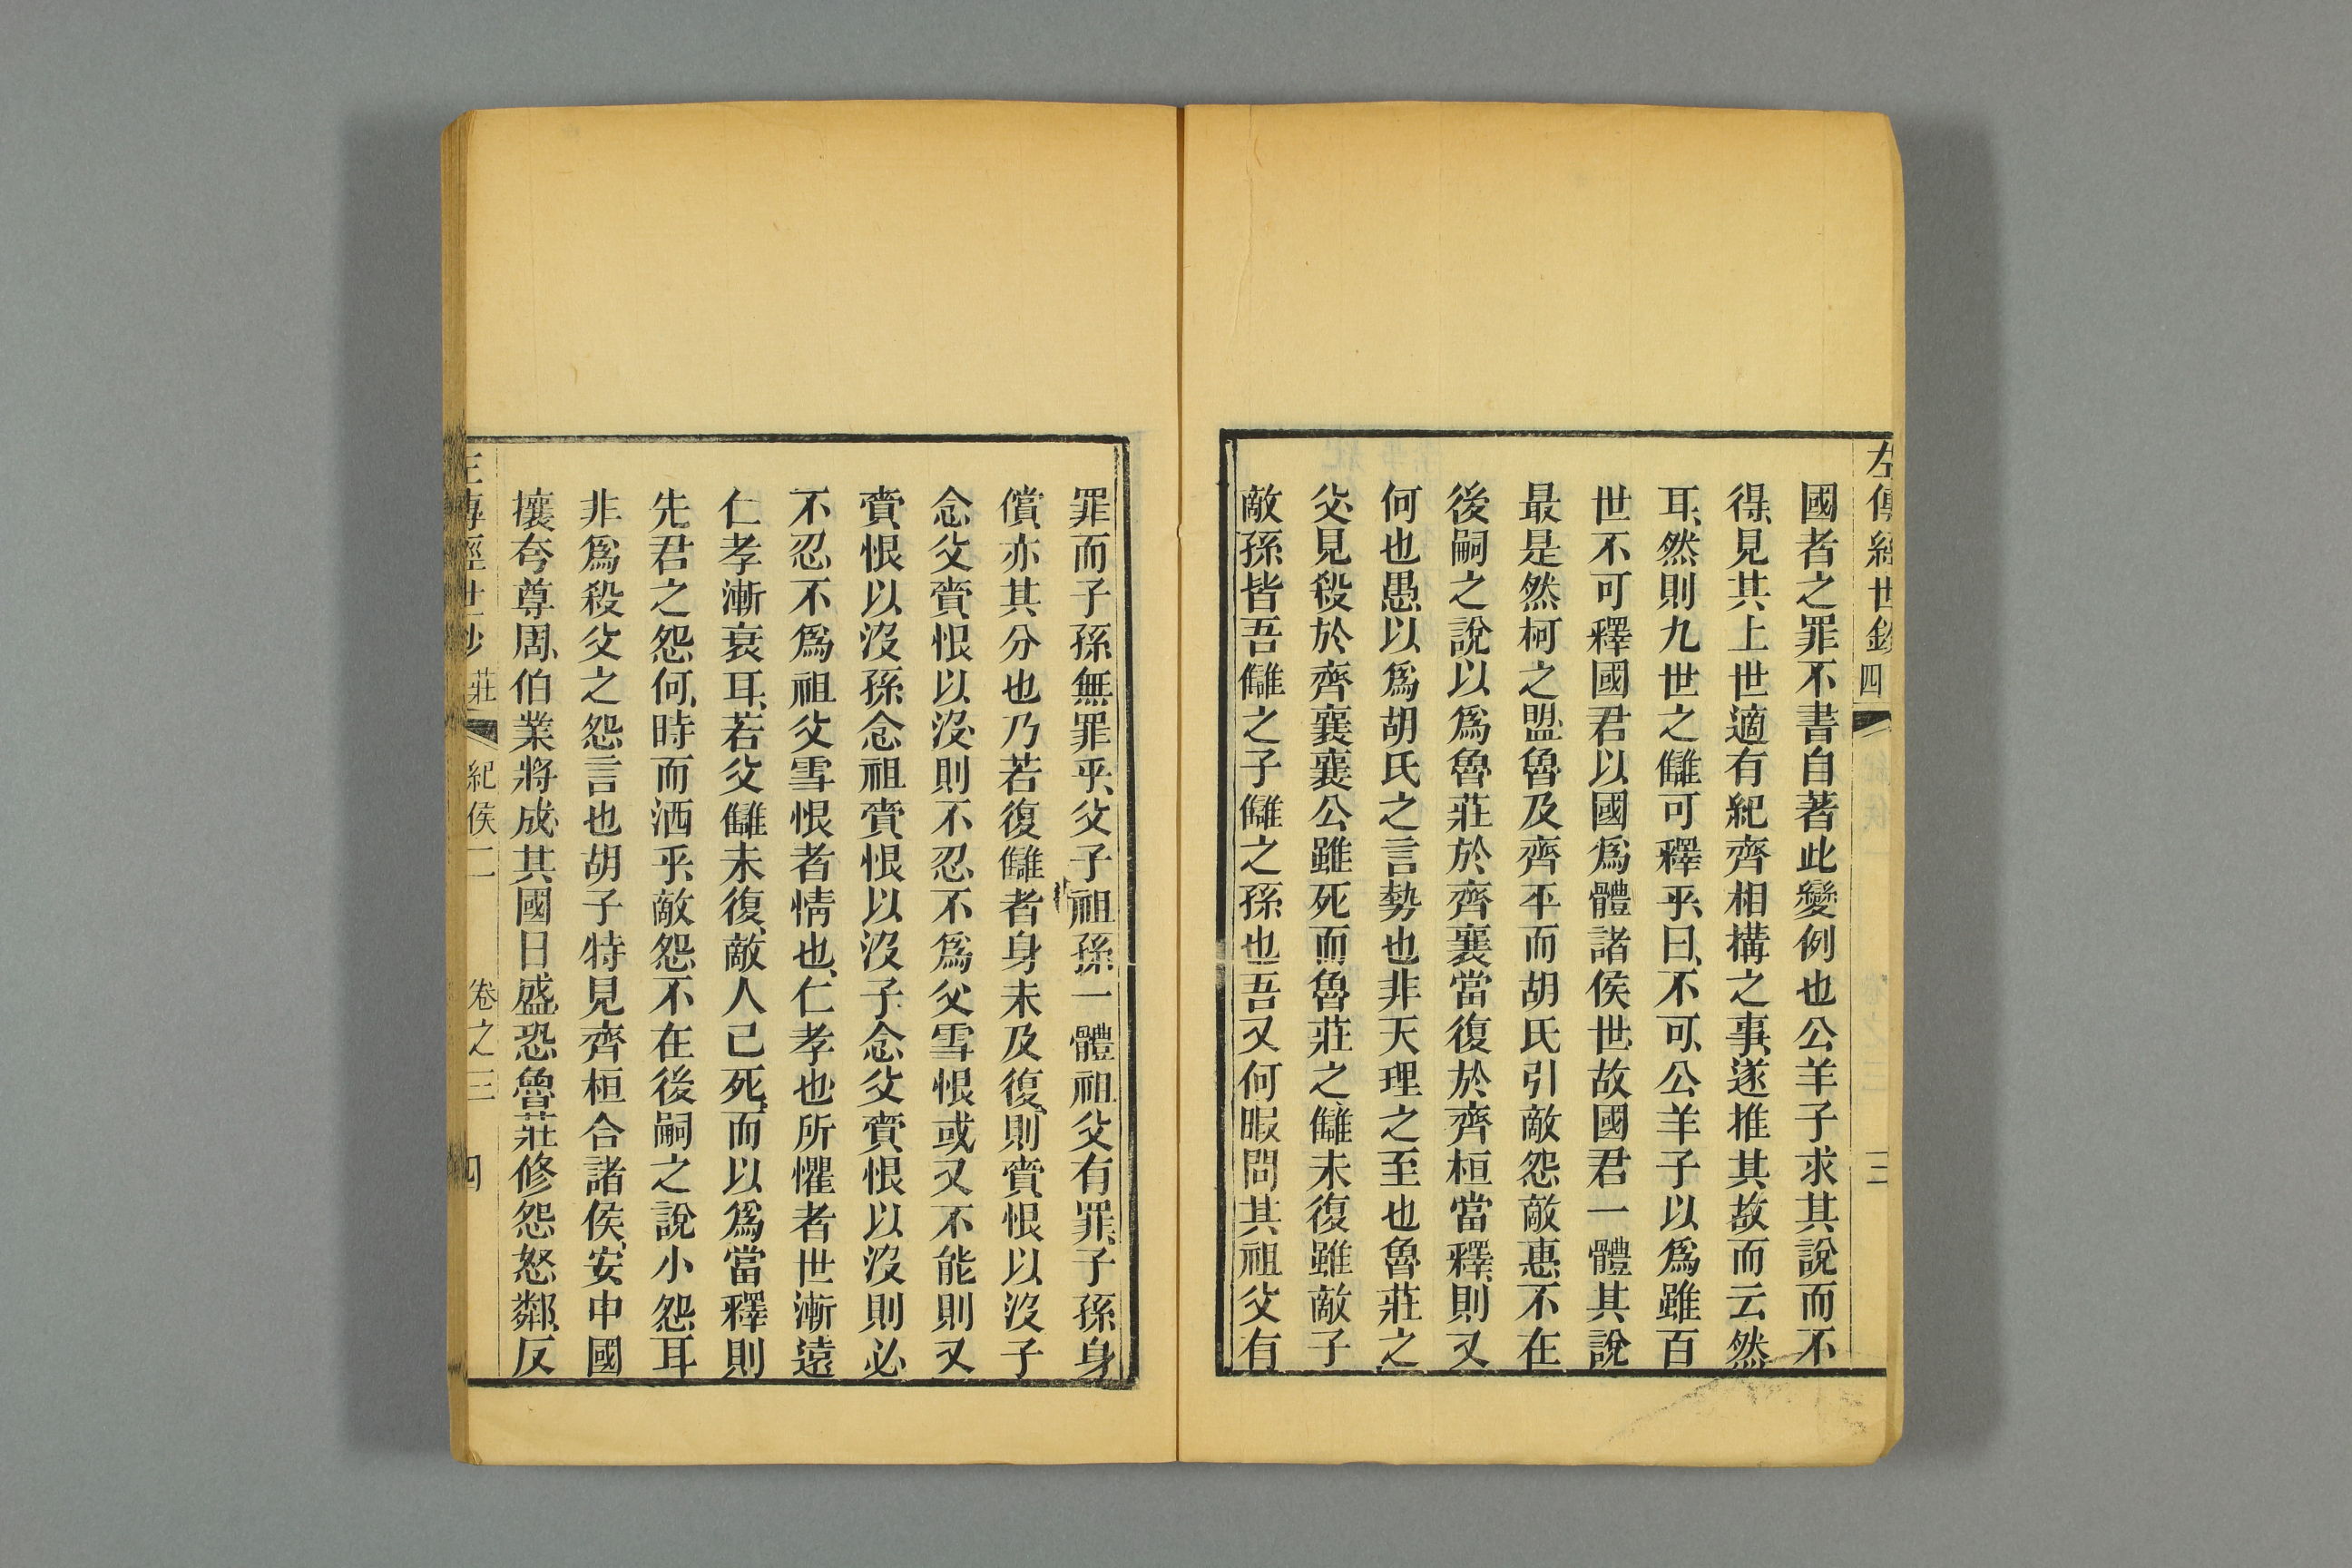 左傳經世鈔 四 三
國者之罪不書自著此變例也公羊子求其說而不
得見其上世適有紀齊相搆之事遂推其故而云然
耳然則九世之讎可釋乎曰不可公羊子以爲雖百
世不可釋國君以國爲體諸侯世故國君一體其說
最是然柯之盟魯及齊平而胡氏引敵怨敵惠不在
後嗣之說以爲魯莊於齊襄當復於齊桓當釋則又
何也愚以爲胡氏之言勢也非天理之至也魯莊之
父見殺於齊襄襄公雖死而魯莊之讎未復雖敵子
敵孫皆吾讎之子讎之孫也吾又何暇問其祖父有
罪而子孫無罪乎父子祖孫一體祖父有罪子孫身
償亦其分也乃若復讎者身未及復則賫恨以沒子
念父賫恨以沒則不忍不爲父雪恨或又不能則又
賫恨以沒孫念祖賫恨以沒子念父賫恨以沒則必
不忍不爲祖父雪恨者情也仁孝也所懼者世漸遠
仁孝漸衰耳若父讎未復敵人已死而以爲當釋則
先君之怨何時而洒乎敵怨不在後嗣之說小怨耳
非爲殺父之怨言也胡子特見齊桓合諸侯安中國
攘夸尊周伯業將成其國日盛恐魯莊修怨怒鄰反
左傳經世鈔 莊 紀侯二 卷之三 四